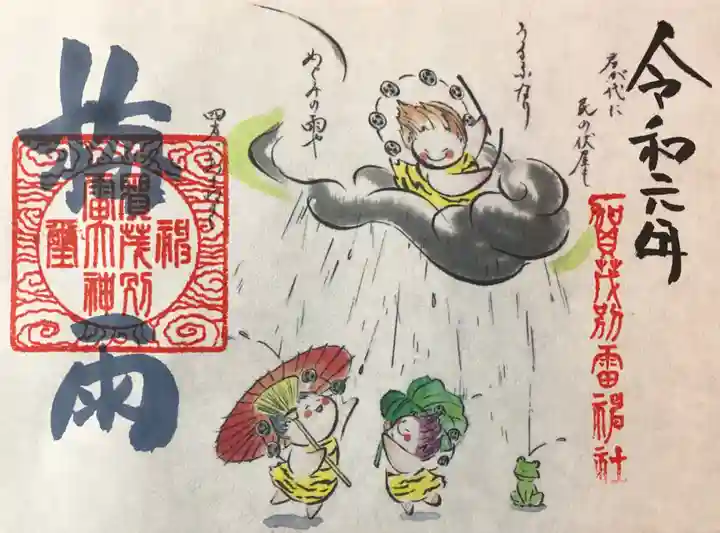 令和元年
賀茂別雷神社
君が代に
民の伏屋も
うるふなり
めぐみの雨や
四方
梅雨
賀茂別
雷大神
神璽